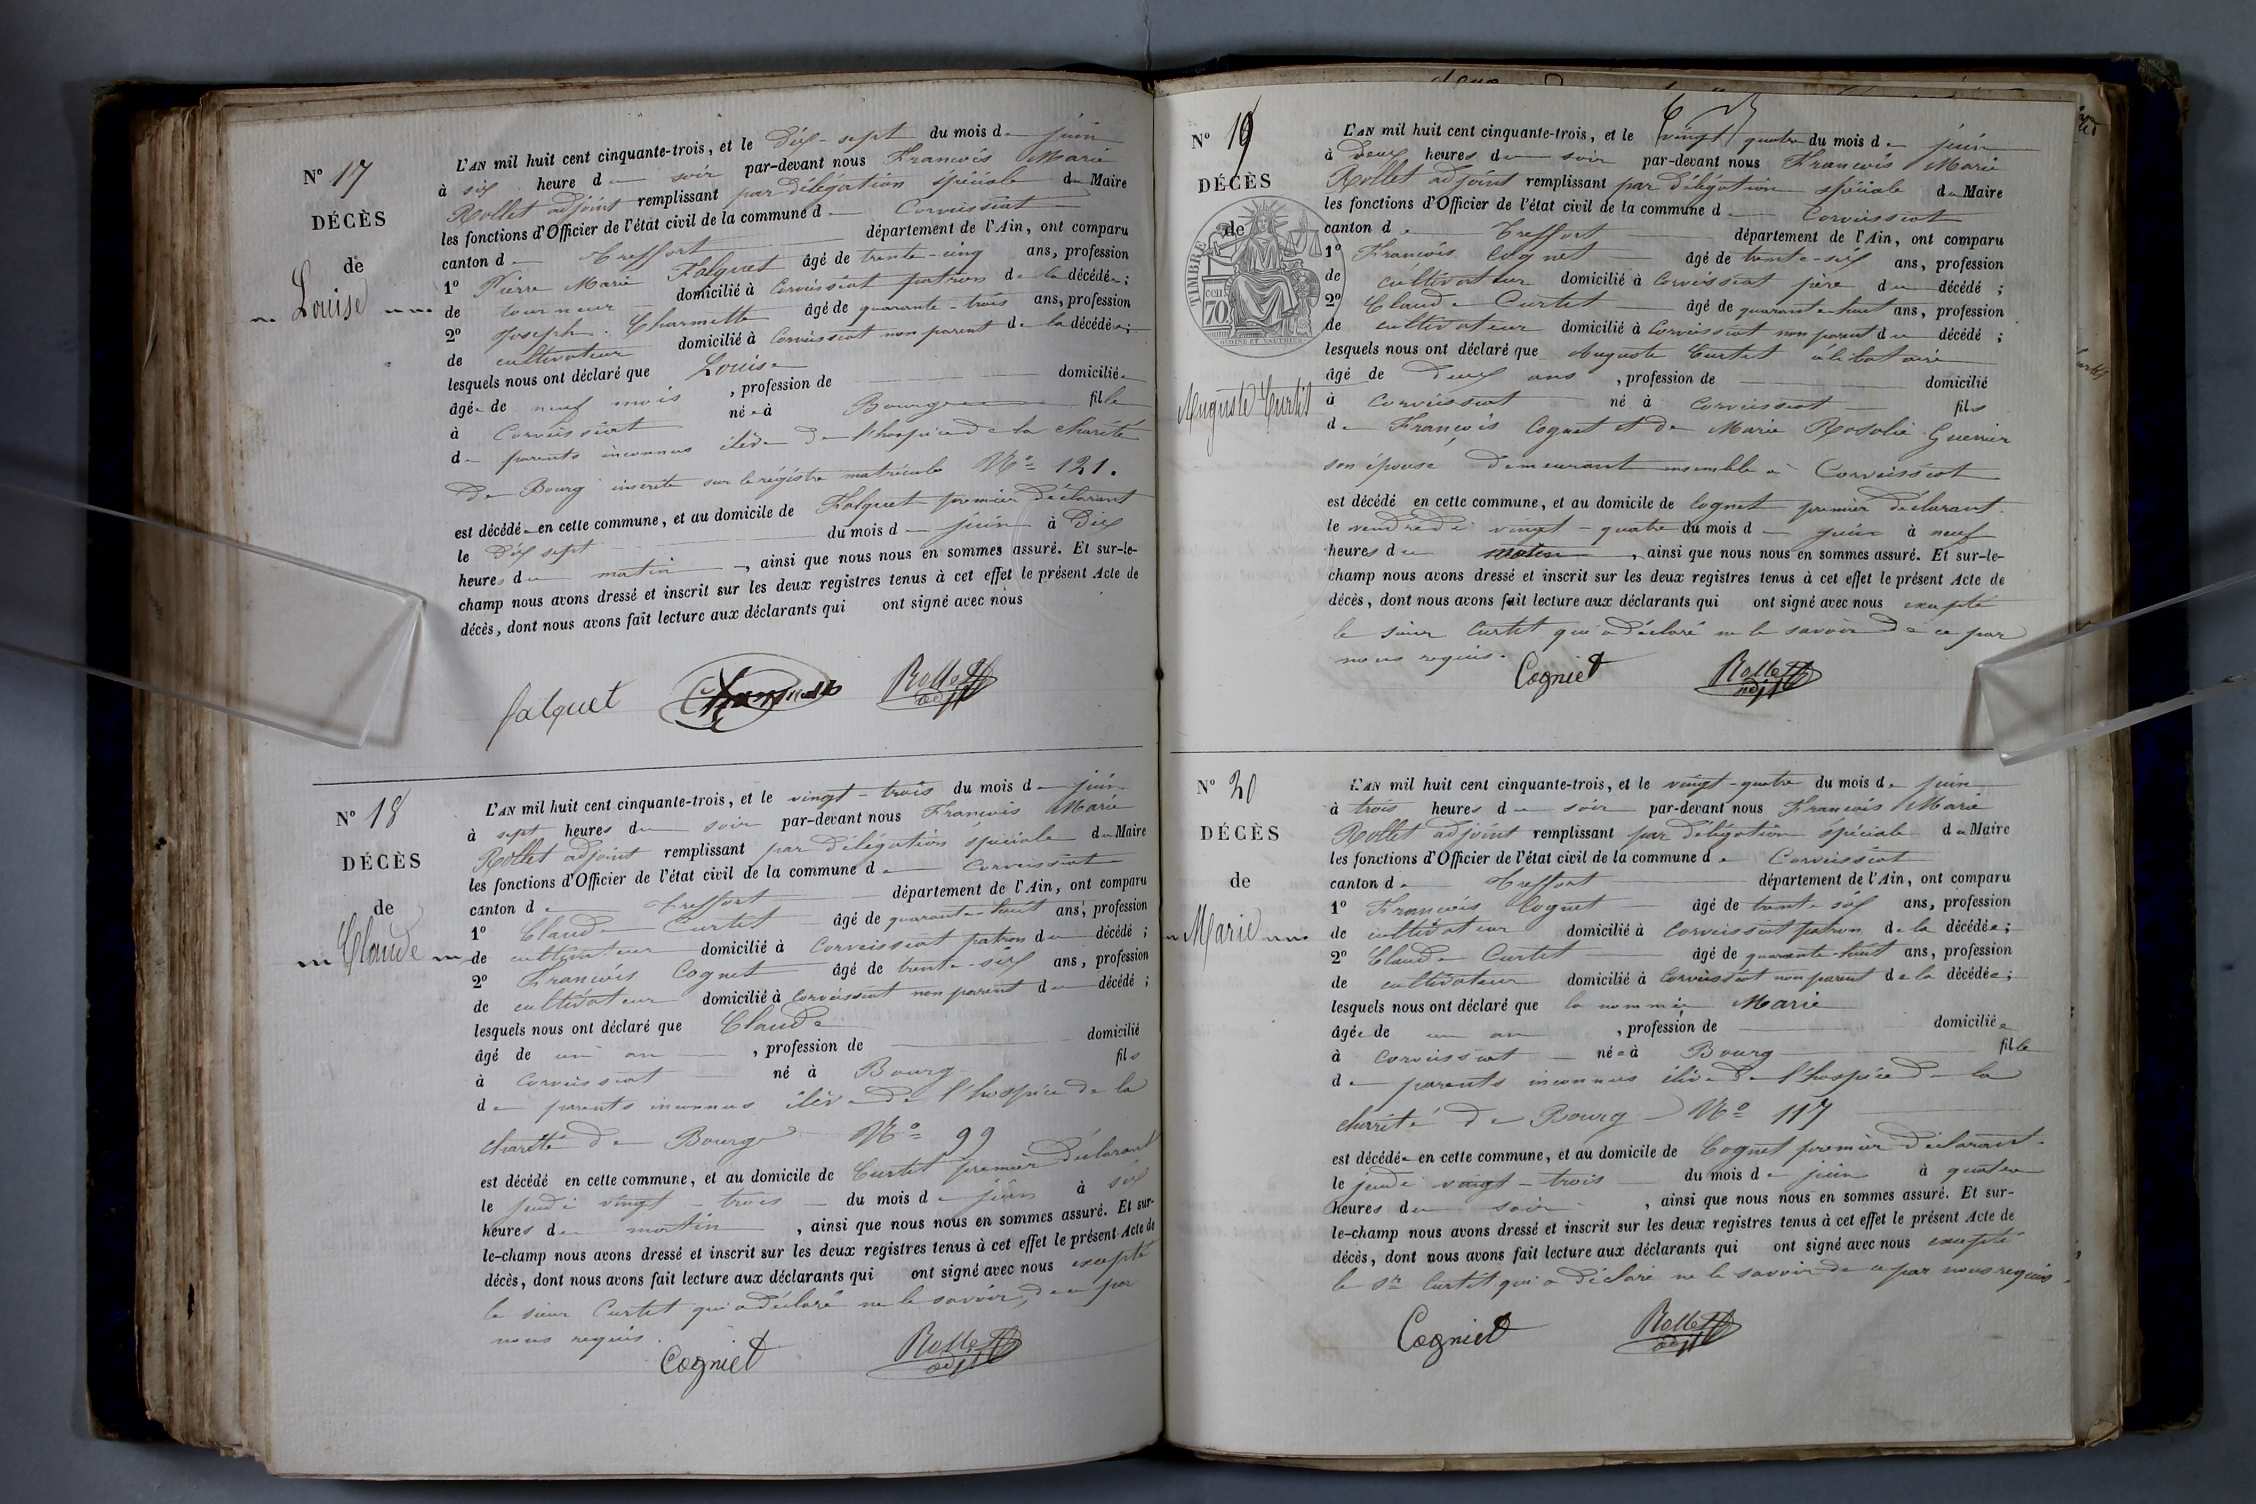 N° 17
DÉCÈS
de
Louise
L'AN mil huit cent cinquante-trois, et le dix-sept du mois de juin
à six heure du soir par-devant nous François Marie
Rollet adjoint remplissant par délégation spéciale du Maire
les fonctions d'Officier de l'état civil de la commune de Corveissiat
canton de Treffort département de l'Ain, ont comparu
1° Pierre Marie Falquet âgé de trente-cinq ans, profession
de tourneur domicilié à Corveissiat patron de la décédée;
2° Joseph Charmette âgé de quarante-trois ans, profession
de cultivateur domicilié à Corveissiat non parent de la décédée;
lesquels nous ont déclaré que Louise
âgée de neuf mois, profession de domiciliée
à Corveissiat née à Bourg fille
de parents inconnus élève de l'hospice de la charité
de Bourg inscrite sur le régistre matricule N° 121.
est décédée en cette commune, et au domicile de Falquet premier déclarant
le dix sept du mois de juin à dix
heures du matin, ainsi que nous nous en sommes assuré. Et sur-le-
champ nous avons dressé et inscrit sur les deux registres tenus à cet effet le présent Acte de
décès, dont nous avons fait lecture aux déclarants qui ont signé avec nous
falquet Charmette Rollet adjt
N° 18
DÉCÈS
de
Claude
L'AN mil huit cent cinquante-trois, et le vingt-trois du mois de juin
à sept heures du soir par-devant nous François Marie
Rollet adjoint remplissant par délégation spéciale du Maire
les fonctions d'Officier de l'état civil de la commune de Corveissiat
canton de Treffort département de l'Ain, ont comparu
1° Claude Curtet âgé de quarante-huit ans, profession
de cultivateur domicilié à Corveissiat patron du décédé;
2° François Cognet âgé de trente-six ans, profession
de cultivateur domicilié à Corveissiat non parent du décédé;
lesquels nous ont déclaré que Claude
âgé de un an, profession de domicilié
à Corveissiat né à Bourg fils
de parents inconnus élève de l'hospice de la
charité de Bourg N° 99
est décédé en cette commune, et au domicile de Curtet premier déclarant
le jeudi vingt-trois du mois de juin à six
heures du matin, ainsi que nous nous en sommes assuré. Et sur-
le-champ nous avons dressé et inscrit sur les deux registres tenus à cet effet le présent Acte de
décès, dont nous avons fait lecture aux déclarants qui ont signé avec nous excepté
le sieur Curtet qui a déclaré ne le savoir, de ce par
nous requis.
Cogniet Rollet adjt
N° 19
DÉCÈS
de
TIMBRE
CEN
70
Auguste Curtet
L'AN mil huit cent cinquante-trois, et le vingt quatre du mois de juin
à deux heures du soir par-devant nous François Marie
Rollet adjoint remplissant par délégation spéciale du Maire
les fonctions d'Officier de l'état civil de la commune de Corveissiat
canton de Treffort département de l'Ain, ont comparu
1° François Cognet âgé de trente-six ans, profession
de cultivateur domicilié à Corveissiat père du décédé;
2° Claude Curtet âgé de quarante huit ans, profession
de cultivateur domicilié à Corveissiat non parent du décédé;
lesquels nous ont déclaré que Auguste Curtet célibataire
âgé de deux ans, profession de domicilié
à Corveissiat né à Corveissiat fils
de François Cognet et de Marie Rosalie Guerrier
son épouse demeurant ensemble à Corveissiat
est décédé en cette commune, et au domicile de Cognet premier déclarant.
le vendredi vingt-quatre du mois de juin à neuf
heures du matin, ainsi que nous nous en sommes assuré. Et sur-le-
champ nous avons dressé et inscrit sur les deux registres tenus à cet effet le présent Acte de
décès, dont nous avons fait lecture aux déclarants qui ont signé avec nous excepté
le sieur Curtet qui a déclaré ne le savoir de ce par
nous requis.
Cogniet Rollet adjt
N° 20
DÉCÈS
de
Marie
L'AN mil huit cent cinquante-trois, et le vingt-quatre du mois de juin
à trois heures du soir par-devant nous François Marie
Rollet adjoint remplissant par délégation spéciale du Maire
les fonctions d'Officier de l'état civil de la commune de Corveissiat
canton de Treffort département de l'Ain, ont comparu
1° François Cognet âgé de trente six ans, profession
de cultivateur domicilié à Corveissiat patron de la décédée;
2° Claude Curtet âgé de quarante-huit ans, profession
de cultivateur domicilié à Corveissiat non parent de la décédée;
lesquels nous ont déclaré que la nommée Marie
âgée de un an, profession de domiciliée
à Corveissiat née à Bourg fille
de parents inconnus élève de l'hospice de la
charité de Bourg N° 117
est décédée en cette commune, et au domicile de Cognet premier déclarant.
le jeudi vingt-trois du mois de juin à quatre
heures du soir, ainsi que nous nous en sommes assuré. Et sur-
le-champ nous avons dressé et inscrit sur les deux registres tenus à cet effet le présent Acte de
décès, dont nous avons fait lecture aux déclarants qui ont signé avec nous excepté
le Sr Curtet qui a déclaré ne le savoir de ce par nous requis.
Cogniet Rollet adjt